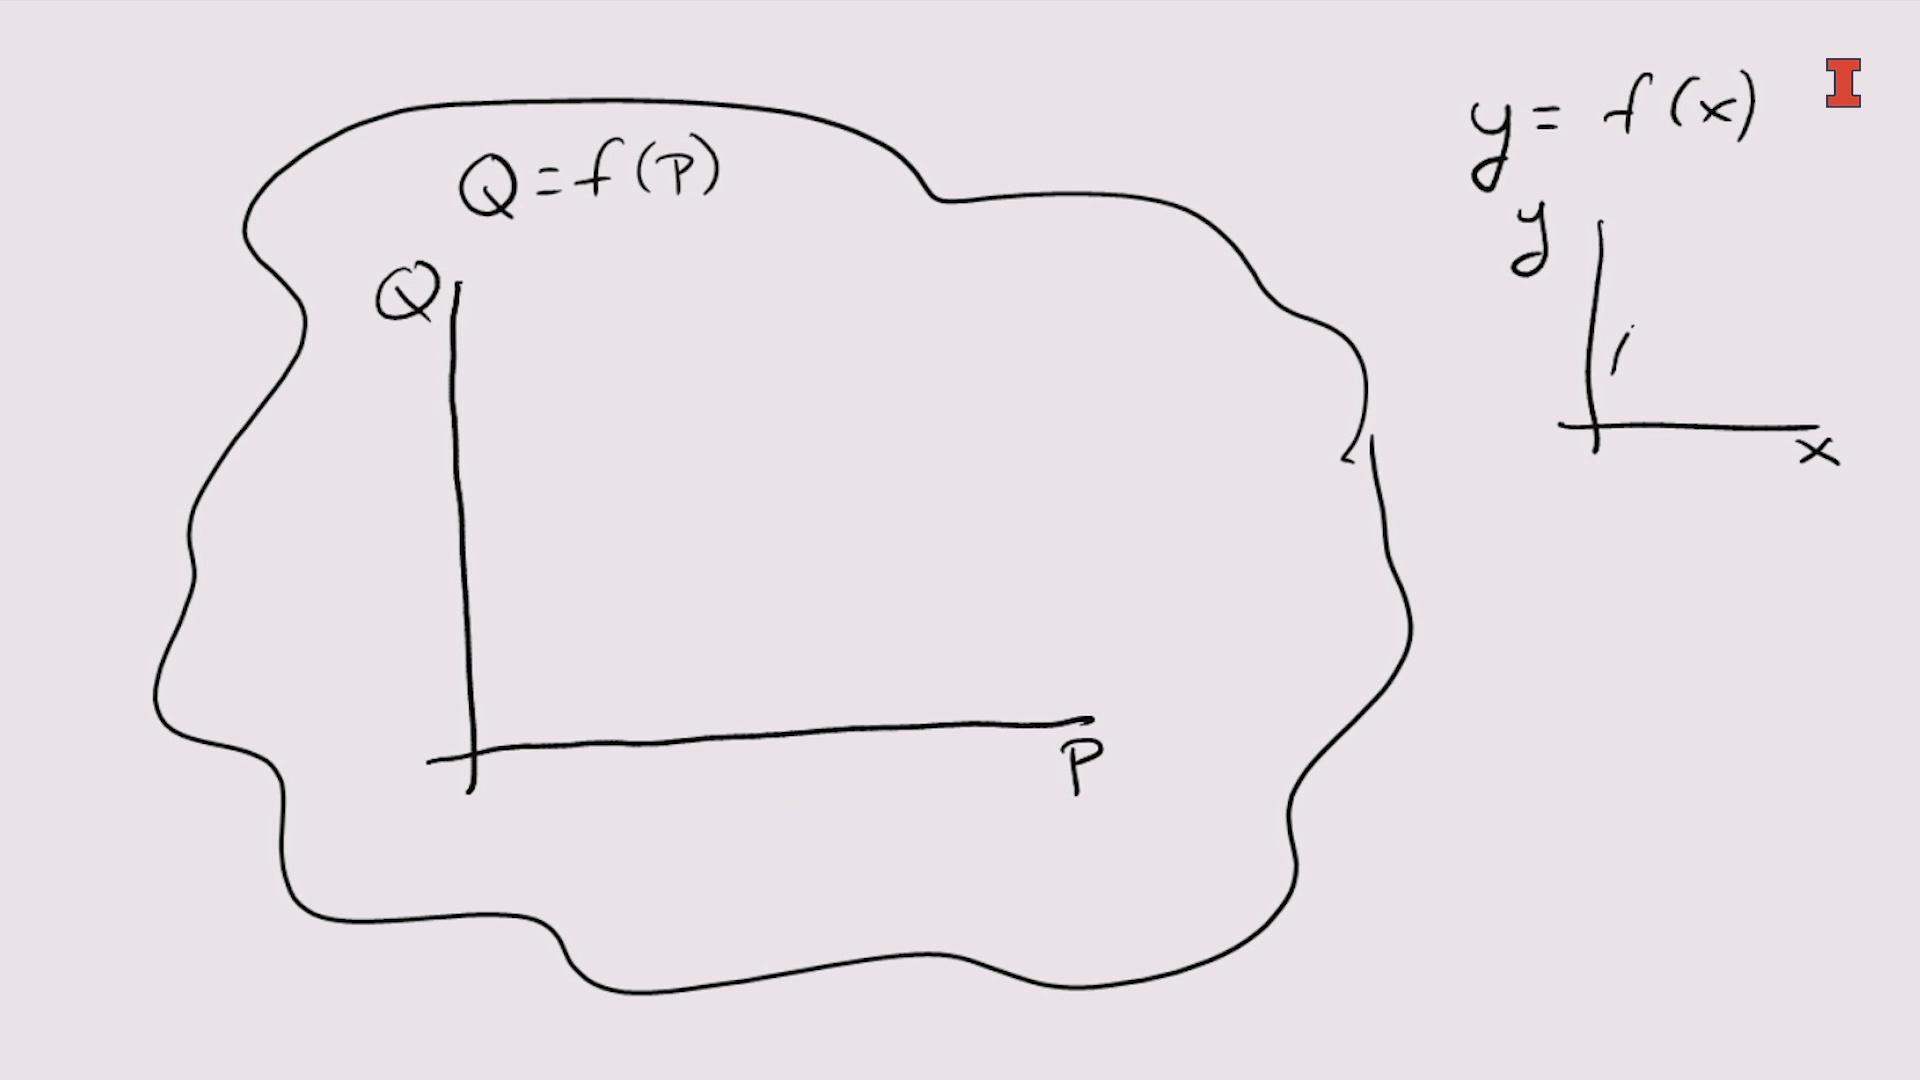 Q = f(P)
Q
P
y = f(x)
y
x
I